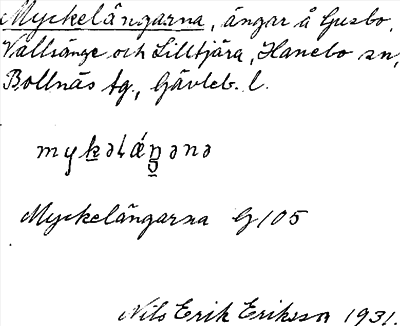 Myckelängarna, ängar å Gusbo,
Vallsänge och Lilltjära, Hanebo sn,
Bollnäs tg., Gävleb. l.
Myckelängarna G 105
Nils Erik Eriksson 1931.